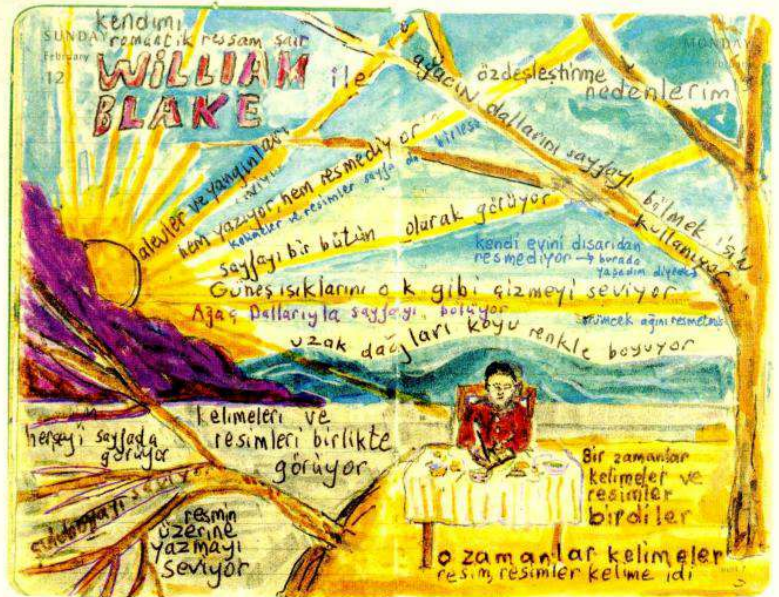 SUNDAY
February
12
MONDAY
kendimi
romantik ressam şair
WİLLİAM
BLAKE ile
özdeşleştirme
nedenlerim
ağacın dallarını sayfayı bölmek için
kullanıyor
alevler ve yangınları
hem yazıyor, hem resmediyor
kelimeler ve resimler sayfa da birleşs
sayfayı bir bütün olarak görüyor
kendi evini dışarıdan
resmediyor → burada
yaşadım diyerek
Güneş ışıklarını ok gibi çizmeyi seviyor
Ağaç Dallarıyla sayfayı bölüyor
örümcek ağını resmetmiş
uzak dağları koyu renkle boyuyor
herşeyi sayfada
görüyor
kelimeleri ve
resimleri birlikte
görüyor
suluboyayı seviyor
resmin
üzerine
yazmayı
seviyor
Bir zamanlar
kelimeler ve
resimler
birdiler
o zamanlar kelimeler
resim, resimler kelime idi